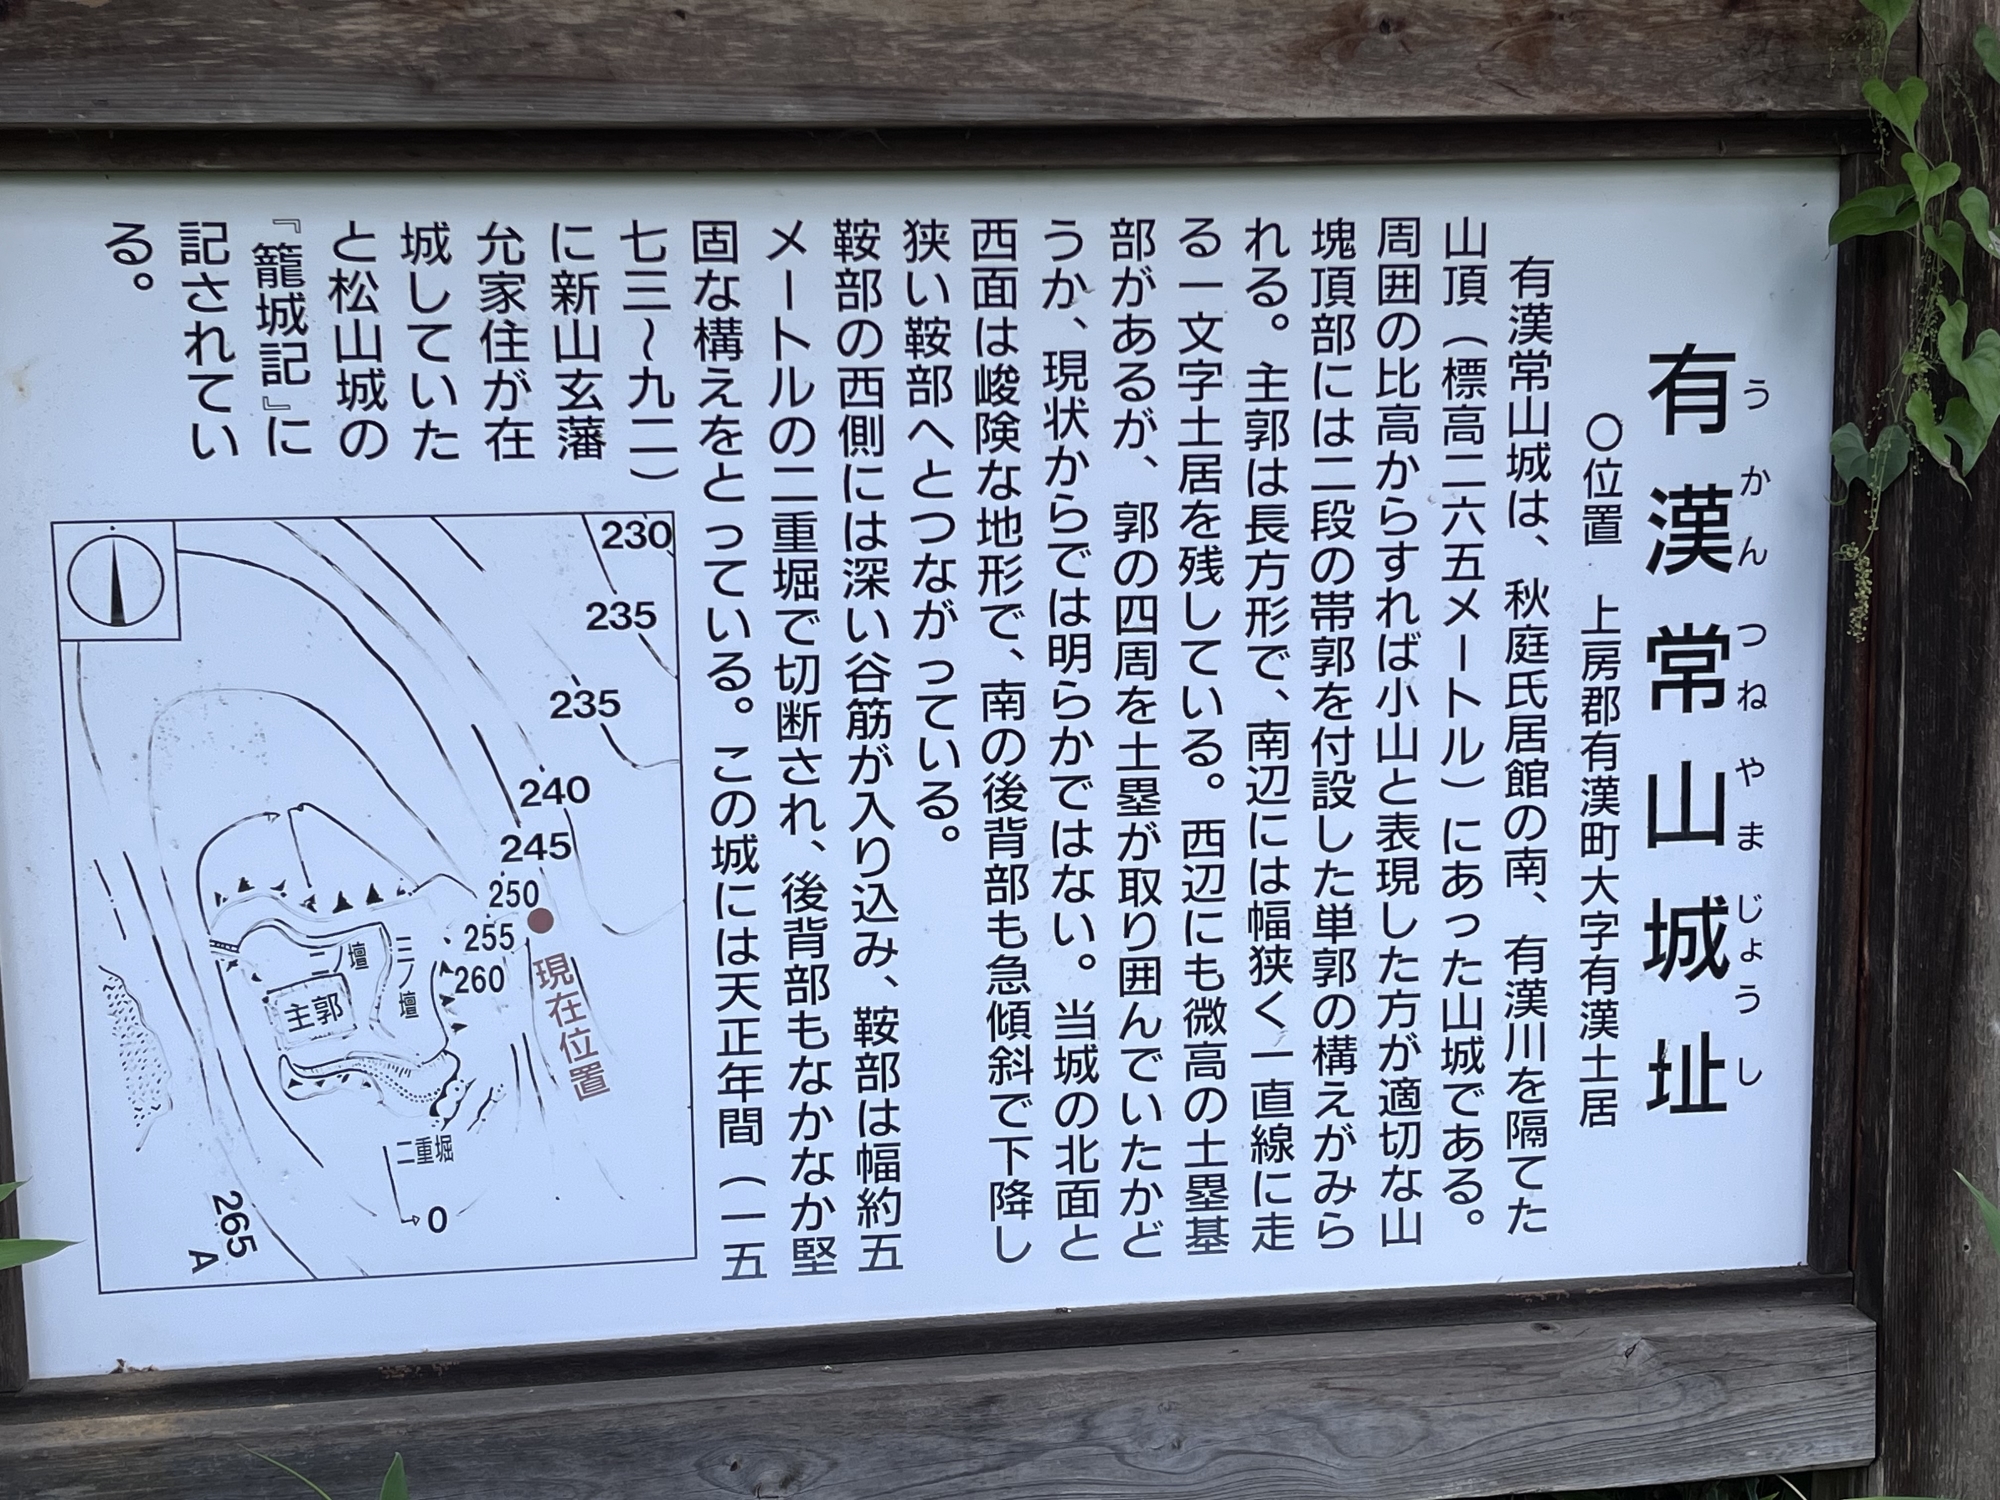 有漢常山城址
うかんつねやまじょうし
〇位置　上房郡有漢町大字有漢土居
有漢常山城は、秋庭氏居館の南、有漢川を隔てた
山頂（標高二六五メートル）にあった山城である。
周囲の比高からすれば小山と表現した方が適切な山
塊頂部には二段の帯郭を付設した単郭の構えがみら
れる。主郭は長方形で、南辺には幅狭く一直線に走
る一文字土居を残している。西辺にも微高の土塁基
部があるが、郭の四周を土塁が取り囲んでいたかど
うか、現状からでは明らかではない。当城の北面と
西面は峻険な地形で、南の後背部も急傾斜で下降し
狭い鞍部へとつながっている。
鞍部の西側には深い谷筋が入り込み、鞍部は幅約五
メートルの二重堀で切断され、後背部もなかなか堅
固な構えをとっている。この城には天正年間（一五
七三〜九二）
に新山玄藩
允家住が在
城していた
と松山城の
『籠城記』に
記されてい
る。
230
235
235
240
245
250
255
260
現在位置
三ノ壇
二ノ壇
主郭
二重堀
0
265
A